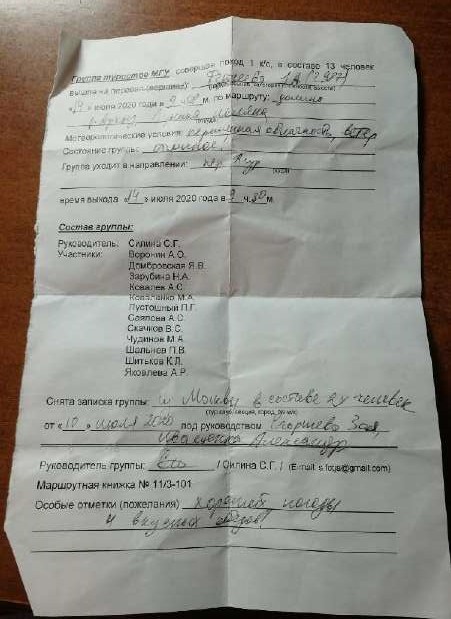 Группа туристов МГУ, совершая поход 1 к/с, в составе 13 человек
вышла на перевал (вершину)
« » июля 2020 года в м. по маршруту: долина
Метеорологические условия: переменная облачность, ветер
Состояние группы: отличное
Группа уходит в направлении: пер.
время выхода « » июля 2020 года в 9 ч. 30 м
Состав группы:
Руководитель: Силина С.Г.
Участники: Воронин А.О.
Домбровская Я.В.
Зарубина Н.А.
Ковалев А.С.
Коваленко М.А.
Пустошный П.Г.
Саяпова А.С.
Скачков В.С.
Чудинов М.А.
Шальнов П.В.
Шитьков К.Л.
Яковлева А.Р.
Снята записка группы: Москвы в составе 2х человек
от « 10 » июля 2020 под руководством Зоя,
Александр
Руководитель группы: / Силина С.Г. /
Маршрутная книжка № 11/3-101
Особые отметки (пожелания) хорошей погоды
и вкусных